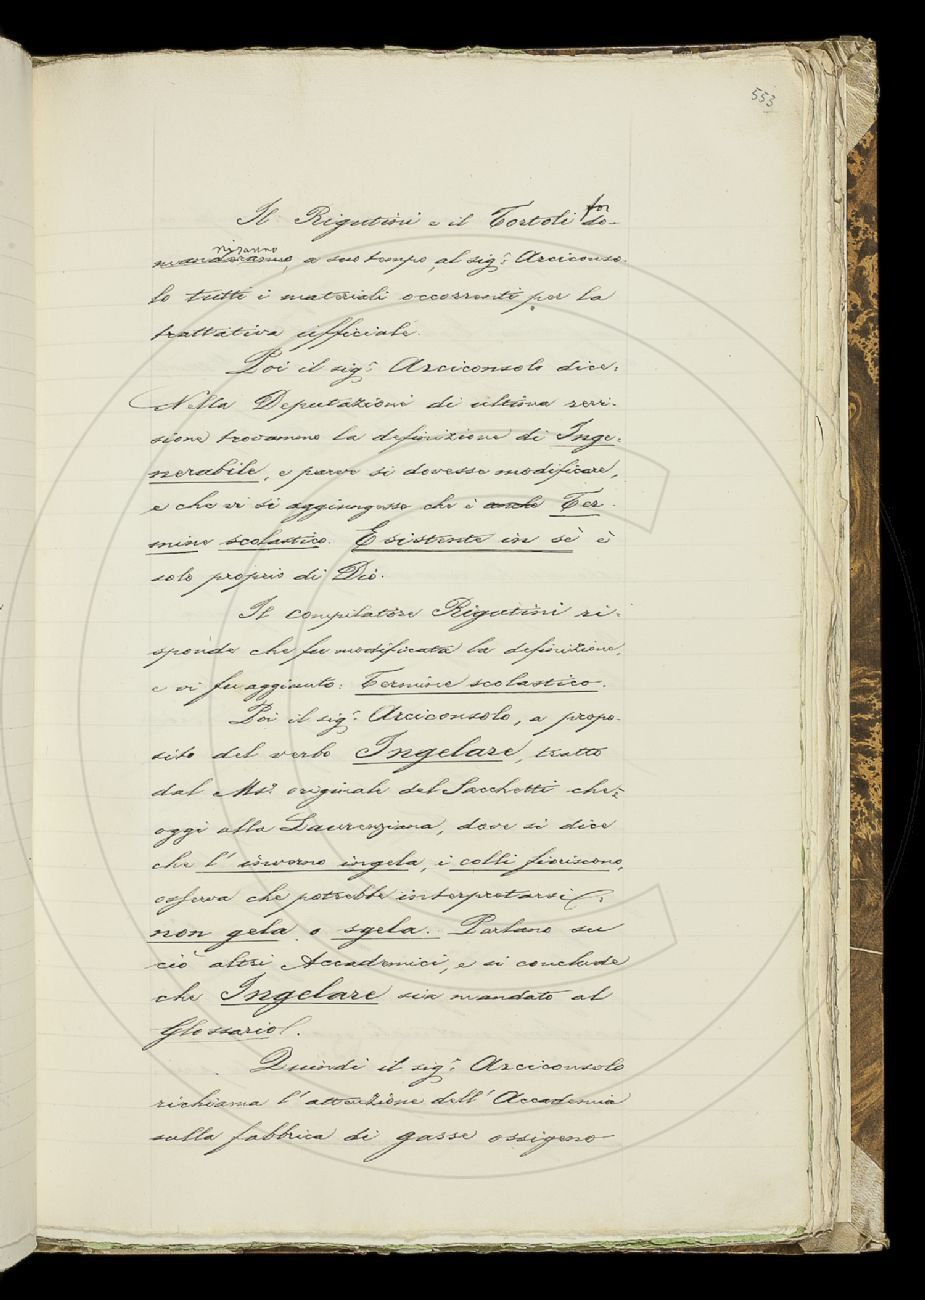 553
Il Rigutini e il Tortoli for
niranno, a suo tempo, al sig.r Arciconso-
lo tutti i materiali occorrenti per la
trattativa ufficiale.
Poi il sig.r Arciconsolo dice:
Nella Deputazioni di ultima revi-
sione trovammo la definizione di Inge-
nerabile, e parve si dovesse modificare,
e che vi si aggiungesse che è anche Ter-
mine scolastico. Esistente in sè è
solo proprio di Dio.
Il compilatore Rigutini ri-
sponde che fu modificata la definizione,
e vi fu aggiunto: Termine scolastico.
Poi il sig.r Arciconsolo, a propo-
sito del verbo Ingelare, tratto
dal Ms. originale del Sacchetti che è
oggi alla Laurenziana, dove si dice
che l'inverno ingela, i colli fioriscono,
osserva che potrebbe interpretarsi:
non gela o sgela. Parlano su
ciò altri Accademici, e si conclude
che Ingelare sia mandato al
Glossario.
Quindi il sig.r Arciconsolo
richiama l'attenzione dell'Accademia
sulla fabbrica di gasse ossigeno